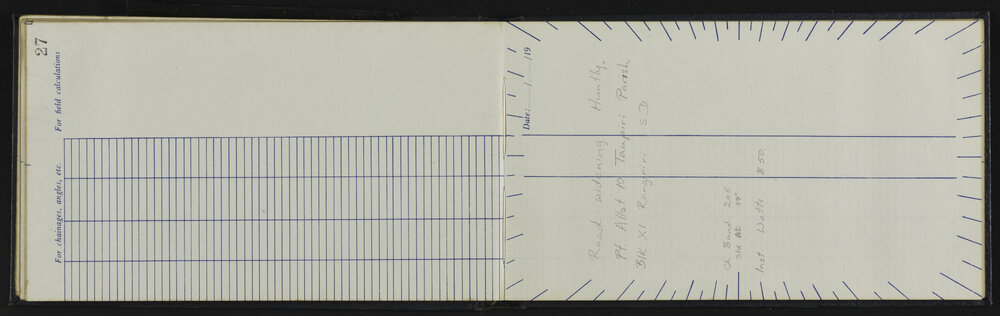 27
For field calculations
For chainages, angles, etc.
Date: / /19
Road widening Huntly.
Pt. Allot 10 Taupiri Parish
Blk XI Rangiriri S.D
Ch Band 205
Std At 59°
Inst Watts B50.